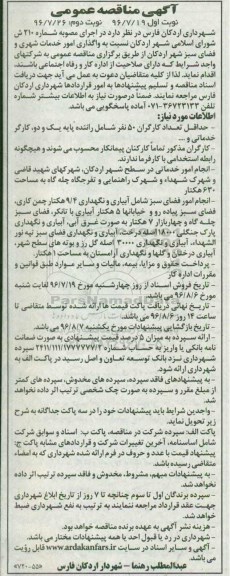 آگهی مناقصه عمومی
نوبت اول ۹۶/۷/۱۹ نوبت دوم: ۹۶/۷/۲۶
شهرداری اردکان فارس در نظر دارد در اجرای مصوبه شماره ۲۱۰ ش
شورای اسلامی شهر اردکان نسبت به واگذاری امور خدمات شهری و
فضای سبز شهر اردکان از طریق برگزاری مناقصه عمومی به شرکتهای
واجد شرایط که دارای صلاحیت از اداره کار و رفاه اجتماعی باشند،
اقدام نماید. لذا از کلیه متقاضیان دعوت به عمل می آید جهت دریافت
اسناد مناقصه و تسلیم پیشنهادها به امور قراردادها شهرداری اردکان
فارس مراجعه نمایند. ضمنا درصورت نیاز به اطلاعات بیشتر شماره
تلفن ۳۶۷۲۳۱۳۳-۰۷۱ آماده پاسخگویی می باشد.
اطلاعات مورد نیاز:
- حداقل تعداد کارگران ۵۰ نفر شامل راننده پایه یک و دو، کارگر
خدماتی و ...
- کارگران مذکور تماماً کارکنان پیمانکار محسوب می شوند و هیچگونه
رابطه استخدامی با کارفرما ندارند.
- انجام امور خدماتی در سطح شهر اردکان، شهرکهای شهید قاضی
و شهرک شهداء و شهرک راهنمایی و تفرجگاه چله گاه به مساحت
۶۳۰ هکتار
- انجام امور فضای سبز شامل آبیاری و نگهداری ۹/۴ هکتار چمن کاری،
فضای سبز پیاده رو و خیابانها ۵ هکتار آبیاری با تانکر، فضای سبز
چله گاه و چهاربازار ۷ هکتار به صورت غرق آبی، آبیاری و نگهداری
پارک جنگلی ۱۸۰۰۰ اصله درخت، آبیاری و نگهداری فضای سبز تپه نور
الشهداء، آبیاری و نگهداری ۳۰۰۰۰ اصله گل رز و بوته های سطح شهر،
آبیاری درختان و گلها و نگهداری آرامستان به مساحت ۱ هکتار.
- پرداخت حقوق و مزایا، بیمه، مالیات و سایر موارد طبق قوانین و
مقررات اداره کار
- تاریخ فروش اسناد از روز چهارشنبه مورخ ۹۶/۷/۱۹ لغایت شنبه
مورخ ۹۶/۸/۶ می باشد.
- تاریخ نهائی دریافت پاکت قیمت
ساعت ۱۴ روز ۹۶/۸/۶ می باشد.
- تاریخ بازگشایی پیشنهادات مورخ یکشنبه ۹۶/۸/۷ می باشد.
- ارائه سپرده به میزان ۵ درصد قیمت پیشنهادی به صورت ضمانت
نامه بانکی یا واریز به حساب شماره
شهرداری نزد بانک توسعه تعاون و اصل رسید در پاکت الف به
شهرداری ارائه شود.
- به پیشنهادهای فاقد سپرده، سپرده های مخدوش، سپرده های کمتر
از مبلغ مقرر و سپرده به صورت چک شخصی ترتیب اثر داده نخواهد
شد.
- واجدین شرایط باید پیشنهادات خود را در سه پاکت جداگانه به شرح
زیر تحویل نمایند.
پاکت الف: سپرده شرکت در مناقصه، پاکت ب: اسناد و سوابق شرکت
شامل اساسنامه، آخرین تغییرات شرکت و قراردادهای مشابه پاکت ج:
پیشنهاد قیمت با عدد و حروف در فرم ارائه شده شهرداری که به امضاء
متقاضی رسیده باشد.
- به پیشنهادات مبهم، مشروط، مخدوش و فاقد سپرده ترتیب اثر داده
نخواهد شد.
- سپرده برندگان اول تا سوم چنانچه تا ۷ روز از تاریخ ابلاغ شهرداری
جهت عقد قرارداد مراجعه ننمایند به ترتیب به نفع شهرداری ضبط
خواهد شد.
- هزینه نشر آگهی به عهده برنده مناقصه خواهد بود.
- شهرداری در رد یا قبول احد یا همه پیشنهادات مختار می باشد.
- آگهی و سایر اسناد در سایت www.ardakanfars.ir قابل رویت
می باشد.
عبدالمطلب رهنما - شهردار اردکان فارس